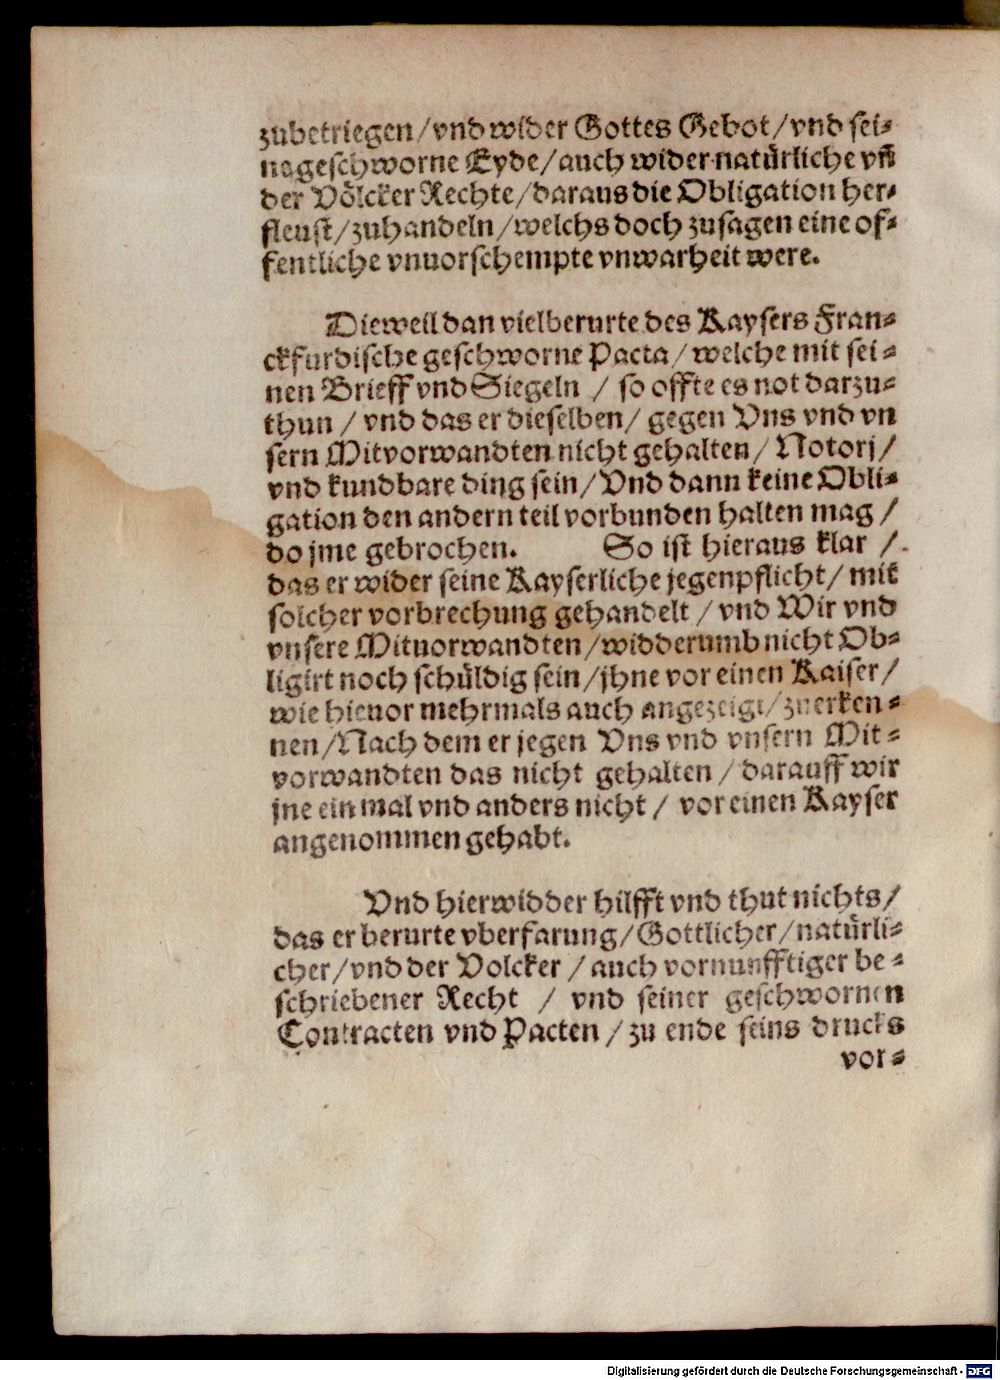 zubetriegen/vnd wider Gottes Gebot/vnd sei⸗
ne geschworne Eyde/auch wider natürliche vn̄
der Völcker Rechte/daraus die Obligation her⸗
fleust/zuhandeln/welchs doch zusagen eine of⸗
fentliche vnuorschempte vnwarheit were.
Dieweil dan vielberurte des Kaysers Fran⸗
ckfurdische geschworne Pacta/welche mit sei⸗
nen Brieff vnd Siegeln / so offte es not darzu⸗
thun / vnd das er dieselben/ gegen Vns vnd vn
sern Mitvorwandten nicht gehalten/ Notorj/
vnd kundbare ding sein/Vnd dann keine Obli⸗
gation den andern teil vorbunden halten mag /
do jme gebrochen. So ist hieraus klar /
das er wider seine Kayserliche jegenpflicht/ mit
solcher vorbrechung gehandelt / vnd Wir vnd
vnsere Mituorwandten/widderumb nicht Ob⸗
ligirt noch schüldig sein/jhne vor einen Kaiser/
wie hieuor mehrmals auch angezeigt/zuerken⸗
nen/Nach dem er jegen Vns vnd vnsern Mit⸗
vorwandten das nicht gehalten / darauff wir
jne ein mal vnd anders nicht / vor einen Kayser
angenommen gehabt.
Vnd hierwidder hilfft vnd thut nichts/
das er berurte vberfarung/Gottlicher/natürli⸗
cher/vnd der Volcker / auch vornunfftiger be⸗
schriebener Recht / vnd seiner geschwornen
Contracten vnd Pacten / zu ende seins drucks
vor⸗
Digitalisierung gefördert durch die Deutsche Forschungsgemeinschaft - DFG